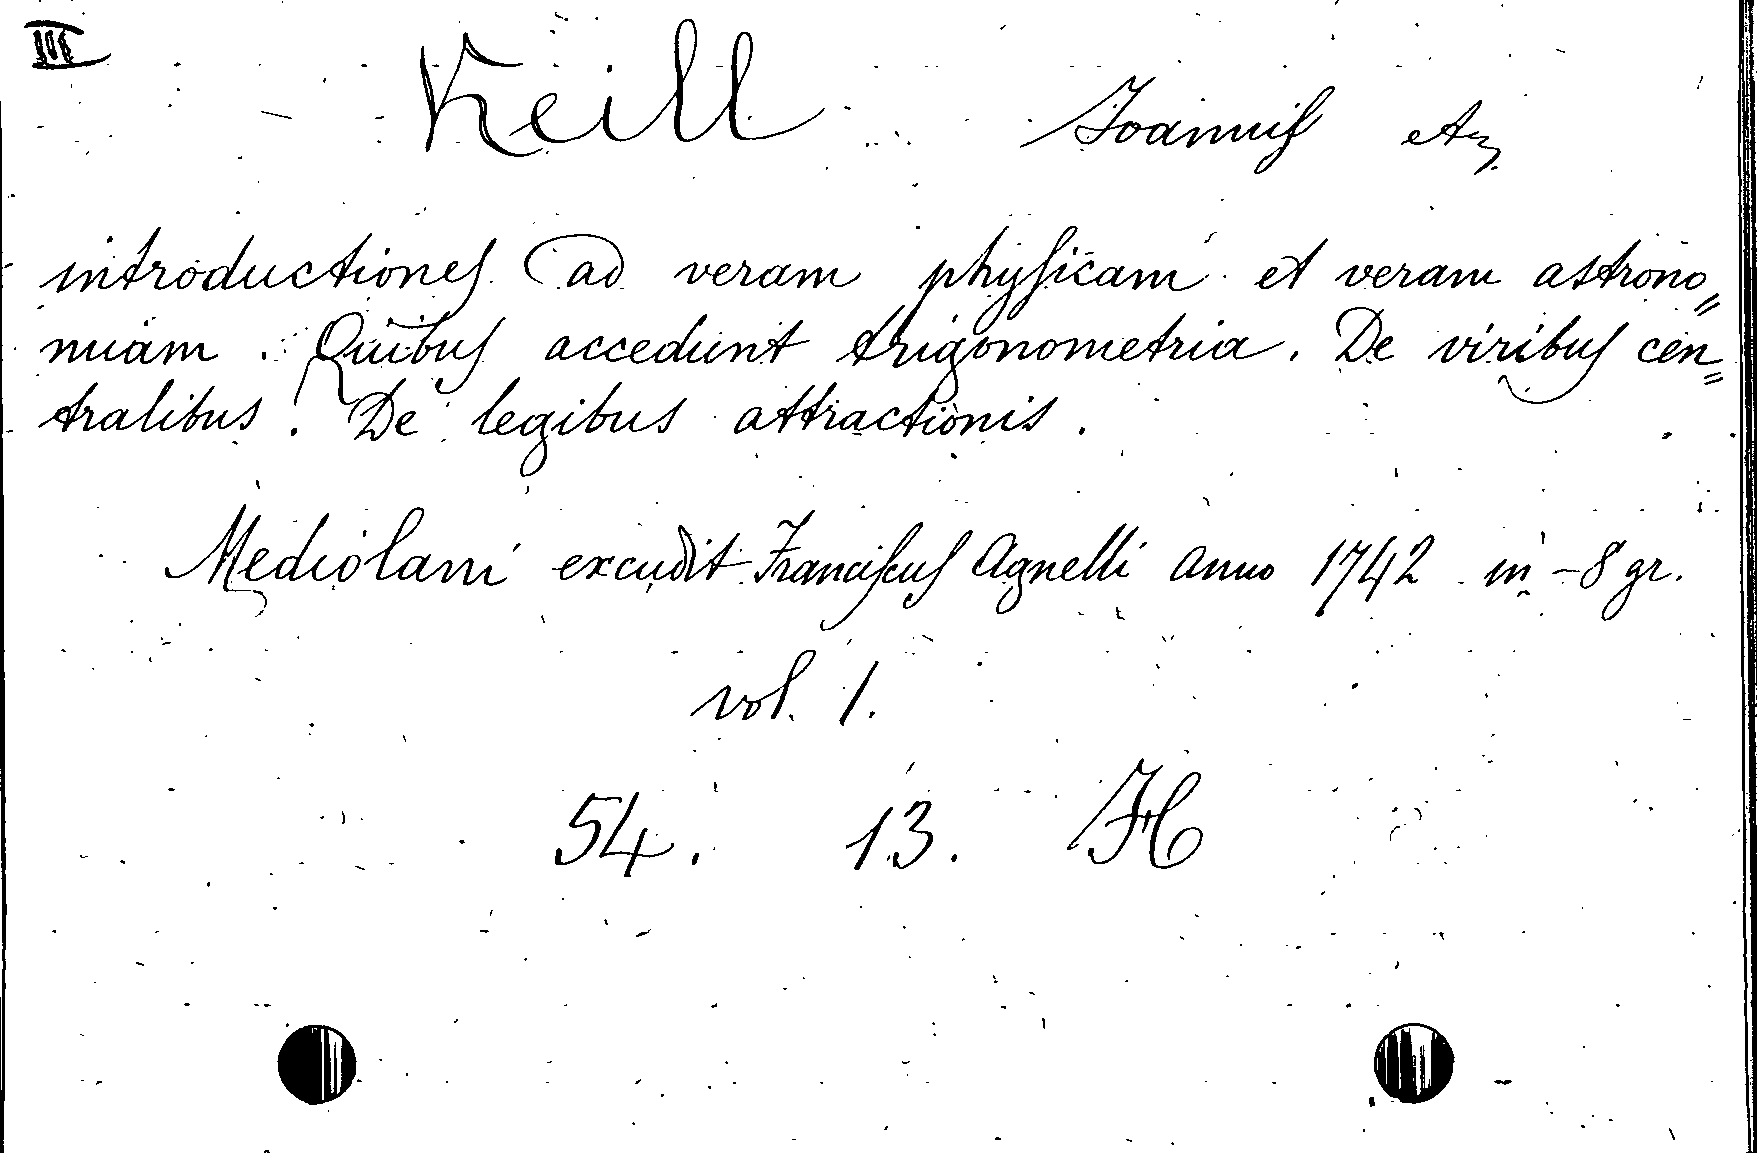 III
Keill Joannis etc
introductiones ad veram physicam et veram astrono=
miam. Quibus accedunt trigonometria. De viribus cen=
tralibus. De legibus attractionis.
Mediolani excudit Franciscus Agnelli anno 1742 in-8 gr.
vol. 1.
54. 13. H